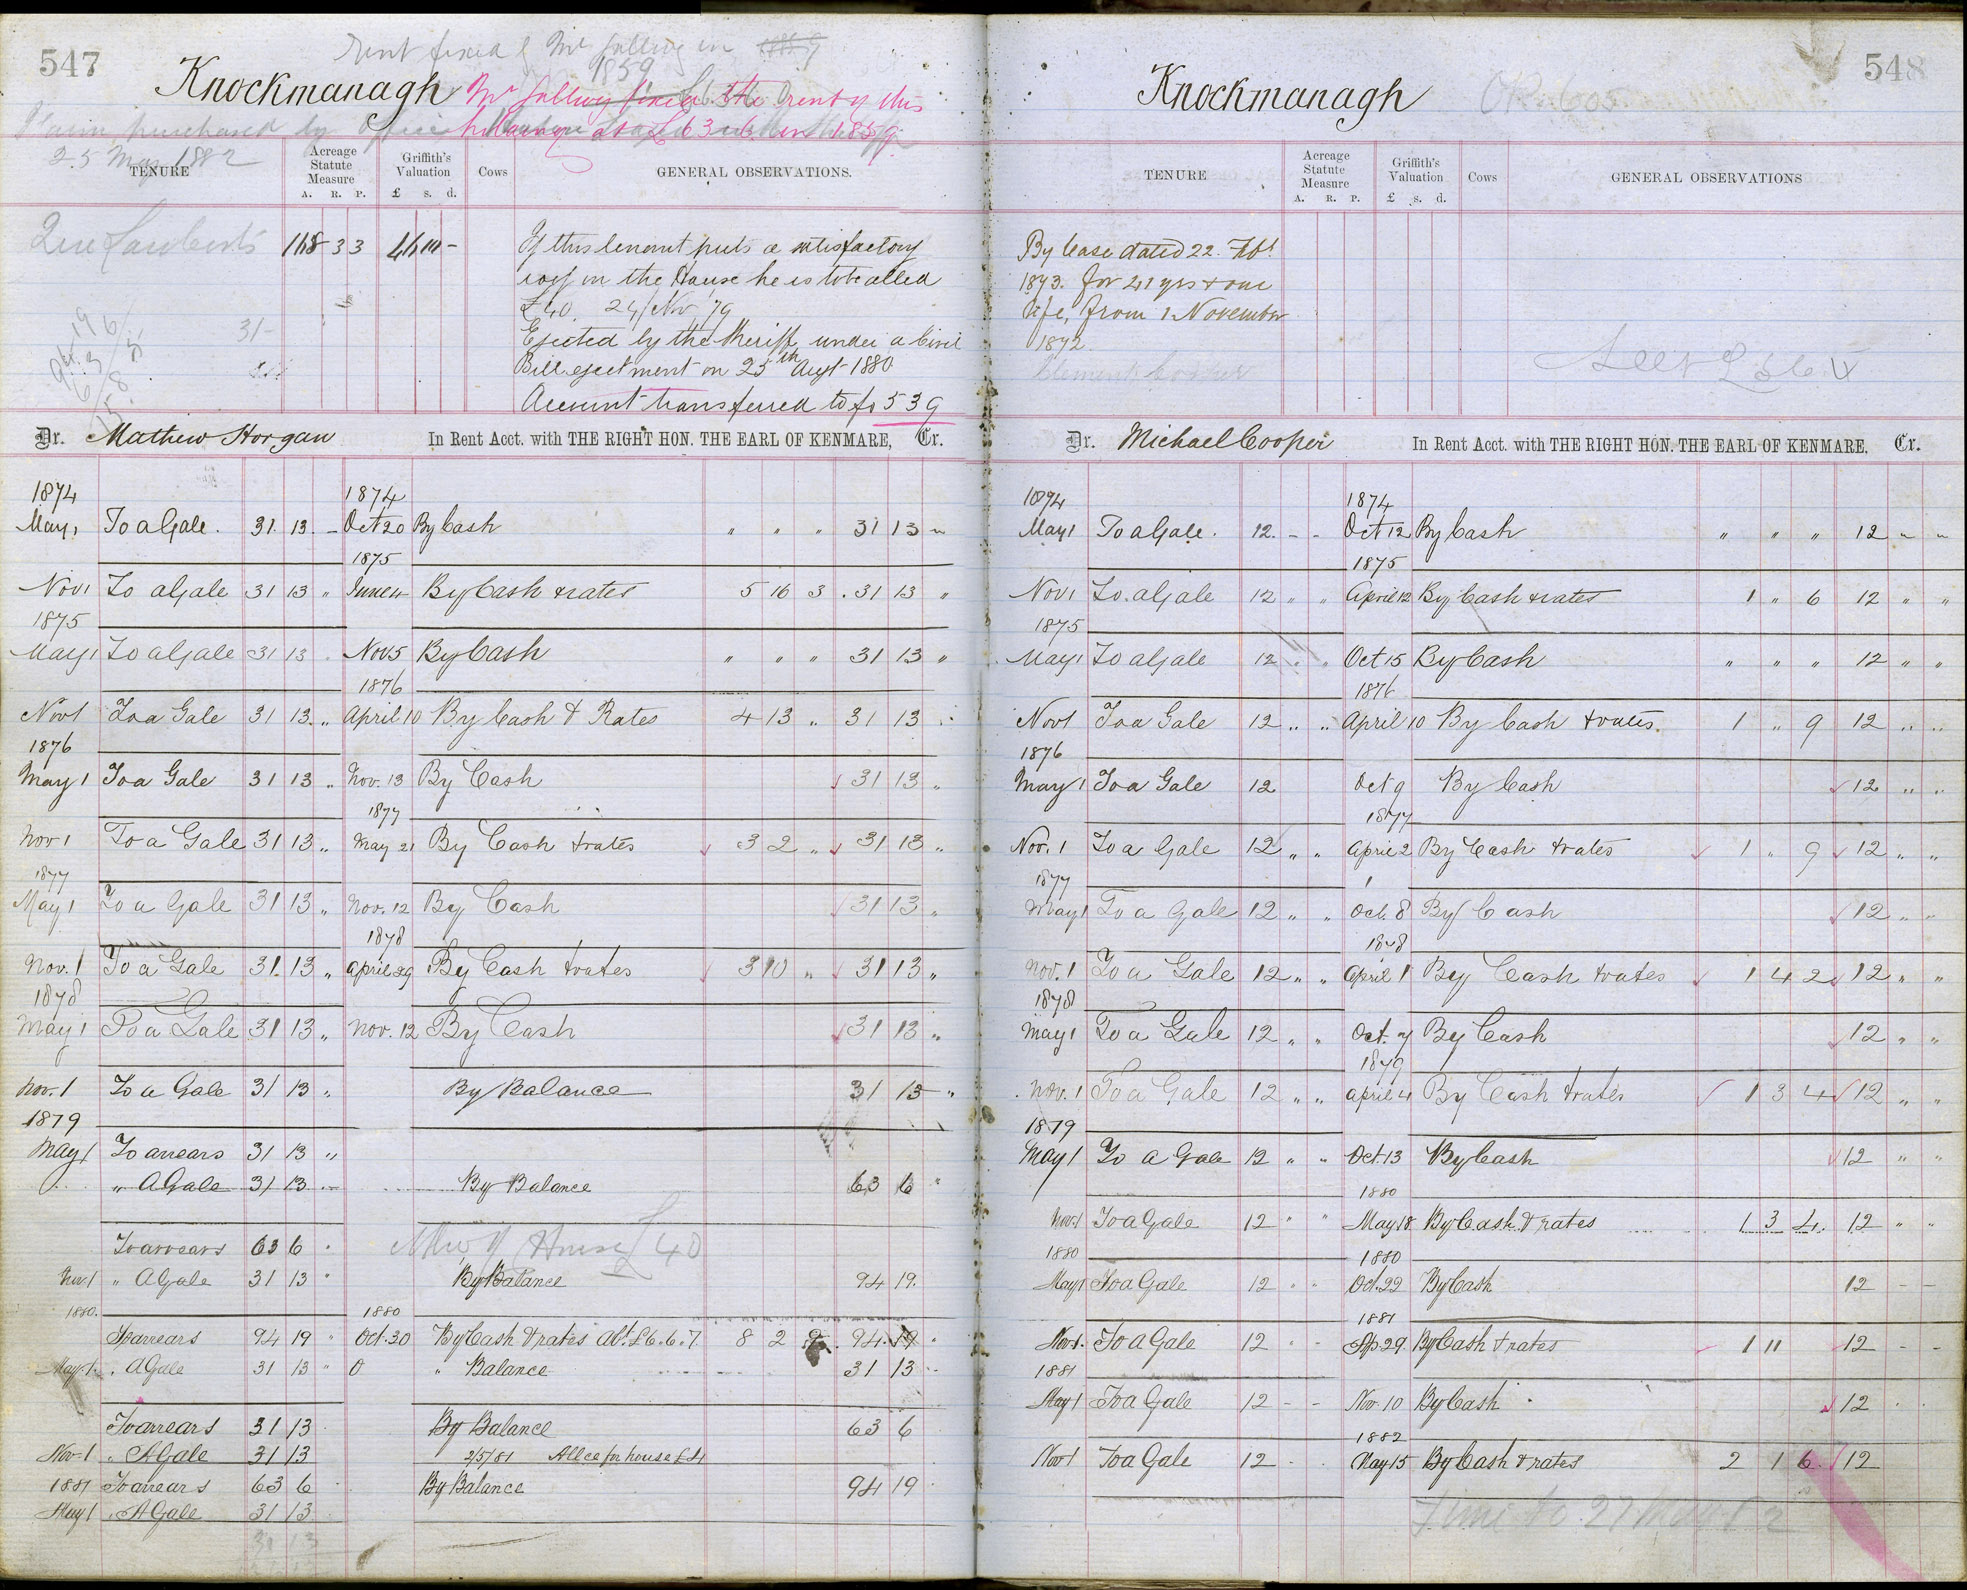 547
rent fixed by Mr Gallwey in 1859
Knockmanagh
Mr Gallwey fixed the rent of this
Farm purchased by
holding at £63 6 in 1859
25 May 1882
TENURE
Acreage Statute Measure
A. R. P.
Griffith's Valuation
£ s. d.
Cows
GENERAL OBSERVATIONS.
168 3 3
If this tenant puts a satisfactory
roof on the House he is to be allced
£40. 24/Nov/79
Ejected by the Sheriff under a Civil
Bill ejectment on 25th Augt 1880
Account transferred to fo 539
31-
Dr. Mathew Horgan In Rent Acct. with THE RIGHT HON. THE EARL OF KENMARE, Cr.
1874 1874
May 1 To a Gale. 31. 13. - Oct 20 By Cash " " " 31 13 "
1875
Nov 1 To a Gale 31 13 " June 4 By Cash & rates 5 16 3 31 13 "
1875
May 1 To a Gale 31 13 . Nov 5 By Cash " " " 31 13 "
1876
Nov 1 To a Gale 31 13 .. April 10 By Cash & Rates 4 13 " 31 13 ..
1876
May 1 To a Gale 31 13 .. Nov. 13 By Cash 31 13 ..
1877
Nov 1 To a Gale 31 13 " May 21 By Cash & rates 3 2 " 31 13 "
1877
May 1 To a Gale 31 13 " Nov. 12 By Cash 31 13 "
1878
Nov. 1 To a Gale 31. 13 " April 29 By Cash & rates 3 10 " 31 13 "
1878
May 1 To a Gale 31 13 " Nov. 12 By Cash 31 13 "
Nov. 1 To a Gale 31 13 " By Balance 31 13 "
1879
May 1 To arrears 31 13 "
" A Gale 31 13 By Balance 63 6 "
To arrears 63 6 "
House £40
Nov. 1 " A Gale 31 13 " By Balance 94 19.
1880. 1880
To arrears 94 19 " Oct. 30 By Cash & rates Abt. £6.6.7. 8 2 9 94. 19 "
May 1. " A Gale 31 13 " 0 " Balance 31 13
To arrears 31 13 By Balance 63 6
Nov 1 " A Gale 31 13 2/5/81 Allce for house £4
1881 To arrears 63 6 By Balance 94 19
May 1 " A Gale 31 13
31 13
548
Knockmanagh
OR. 605
TENURE
Acreage Statute Measure
A. R. P.
Griffith's Valuation
£ s. d.
Cows
GENERAL OBSERVATIONS
By lease dated 22. Feb.
1873. for 41 yrs & one
life, from 1 November
1872.
Clement Cooper
Dr. Michael Cooper In Rent Acct. with THE RIGHT HON. THE EARL OF KENMARE, Cr.
1874 1874
May 1 To a Gale. 12. - - Oct 12 By Cash " " " 12 " "
1875
Nov 1 To a Gale 12 " " April 12 By Cash & rates 1 " 6 12 " "
1875
May 1 To a Gale 12 " " Oct 15 By Cash " " " 12 " "
1876
Nov 1 To a Gale 12 .. .. April 10 By Cash & rates. 1 " 9 12 .. ..
1876
May 1 To a Gale 12 Oct 9 By Cash 12 .. ..
1877
Nov. 1 To a Gale 12 " " April 2 By Cash & rates 1 " 9 12 " "
1877
May 1 To a Gale 12 " " Oct. 8 By Cash 12 " "
1878
Nov. 1 To a Gale 12 " " April 1 By Cash & rates 1 4 2 12 " "
1878
May 1 To a Gale 12 " " Oct. 7 By Cash 12 " "
1879
Nov. 1 To a Gale 12 " " April 4 By Cash & rates 1 3 4 12 " "
1879
May 1 To a Gale 12 " " Oct 13 By Cash 12 " "
1880
Nov. 1 To a Gale 12 " " May 18 By Cash & rates 1 3 4. 12 " "
1880 1880
May 1 To a Gale 12 " " Oct. 22 By Cash 12 - -
1881
Nov 1. To a Gale 12 " - Ap. 29. By Cash & rates 1 11 12 - -
1881
May 1 To a Gale 12 - - Nov. 10 By Cash 12
1882
Nov 1 To a Gale 12 May 15 By Cash & rates 2 1 6 12
Time to 27 May 82